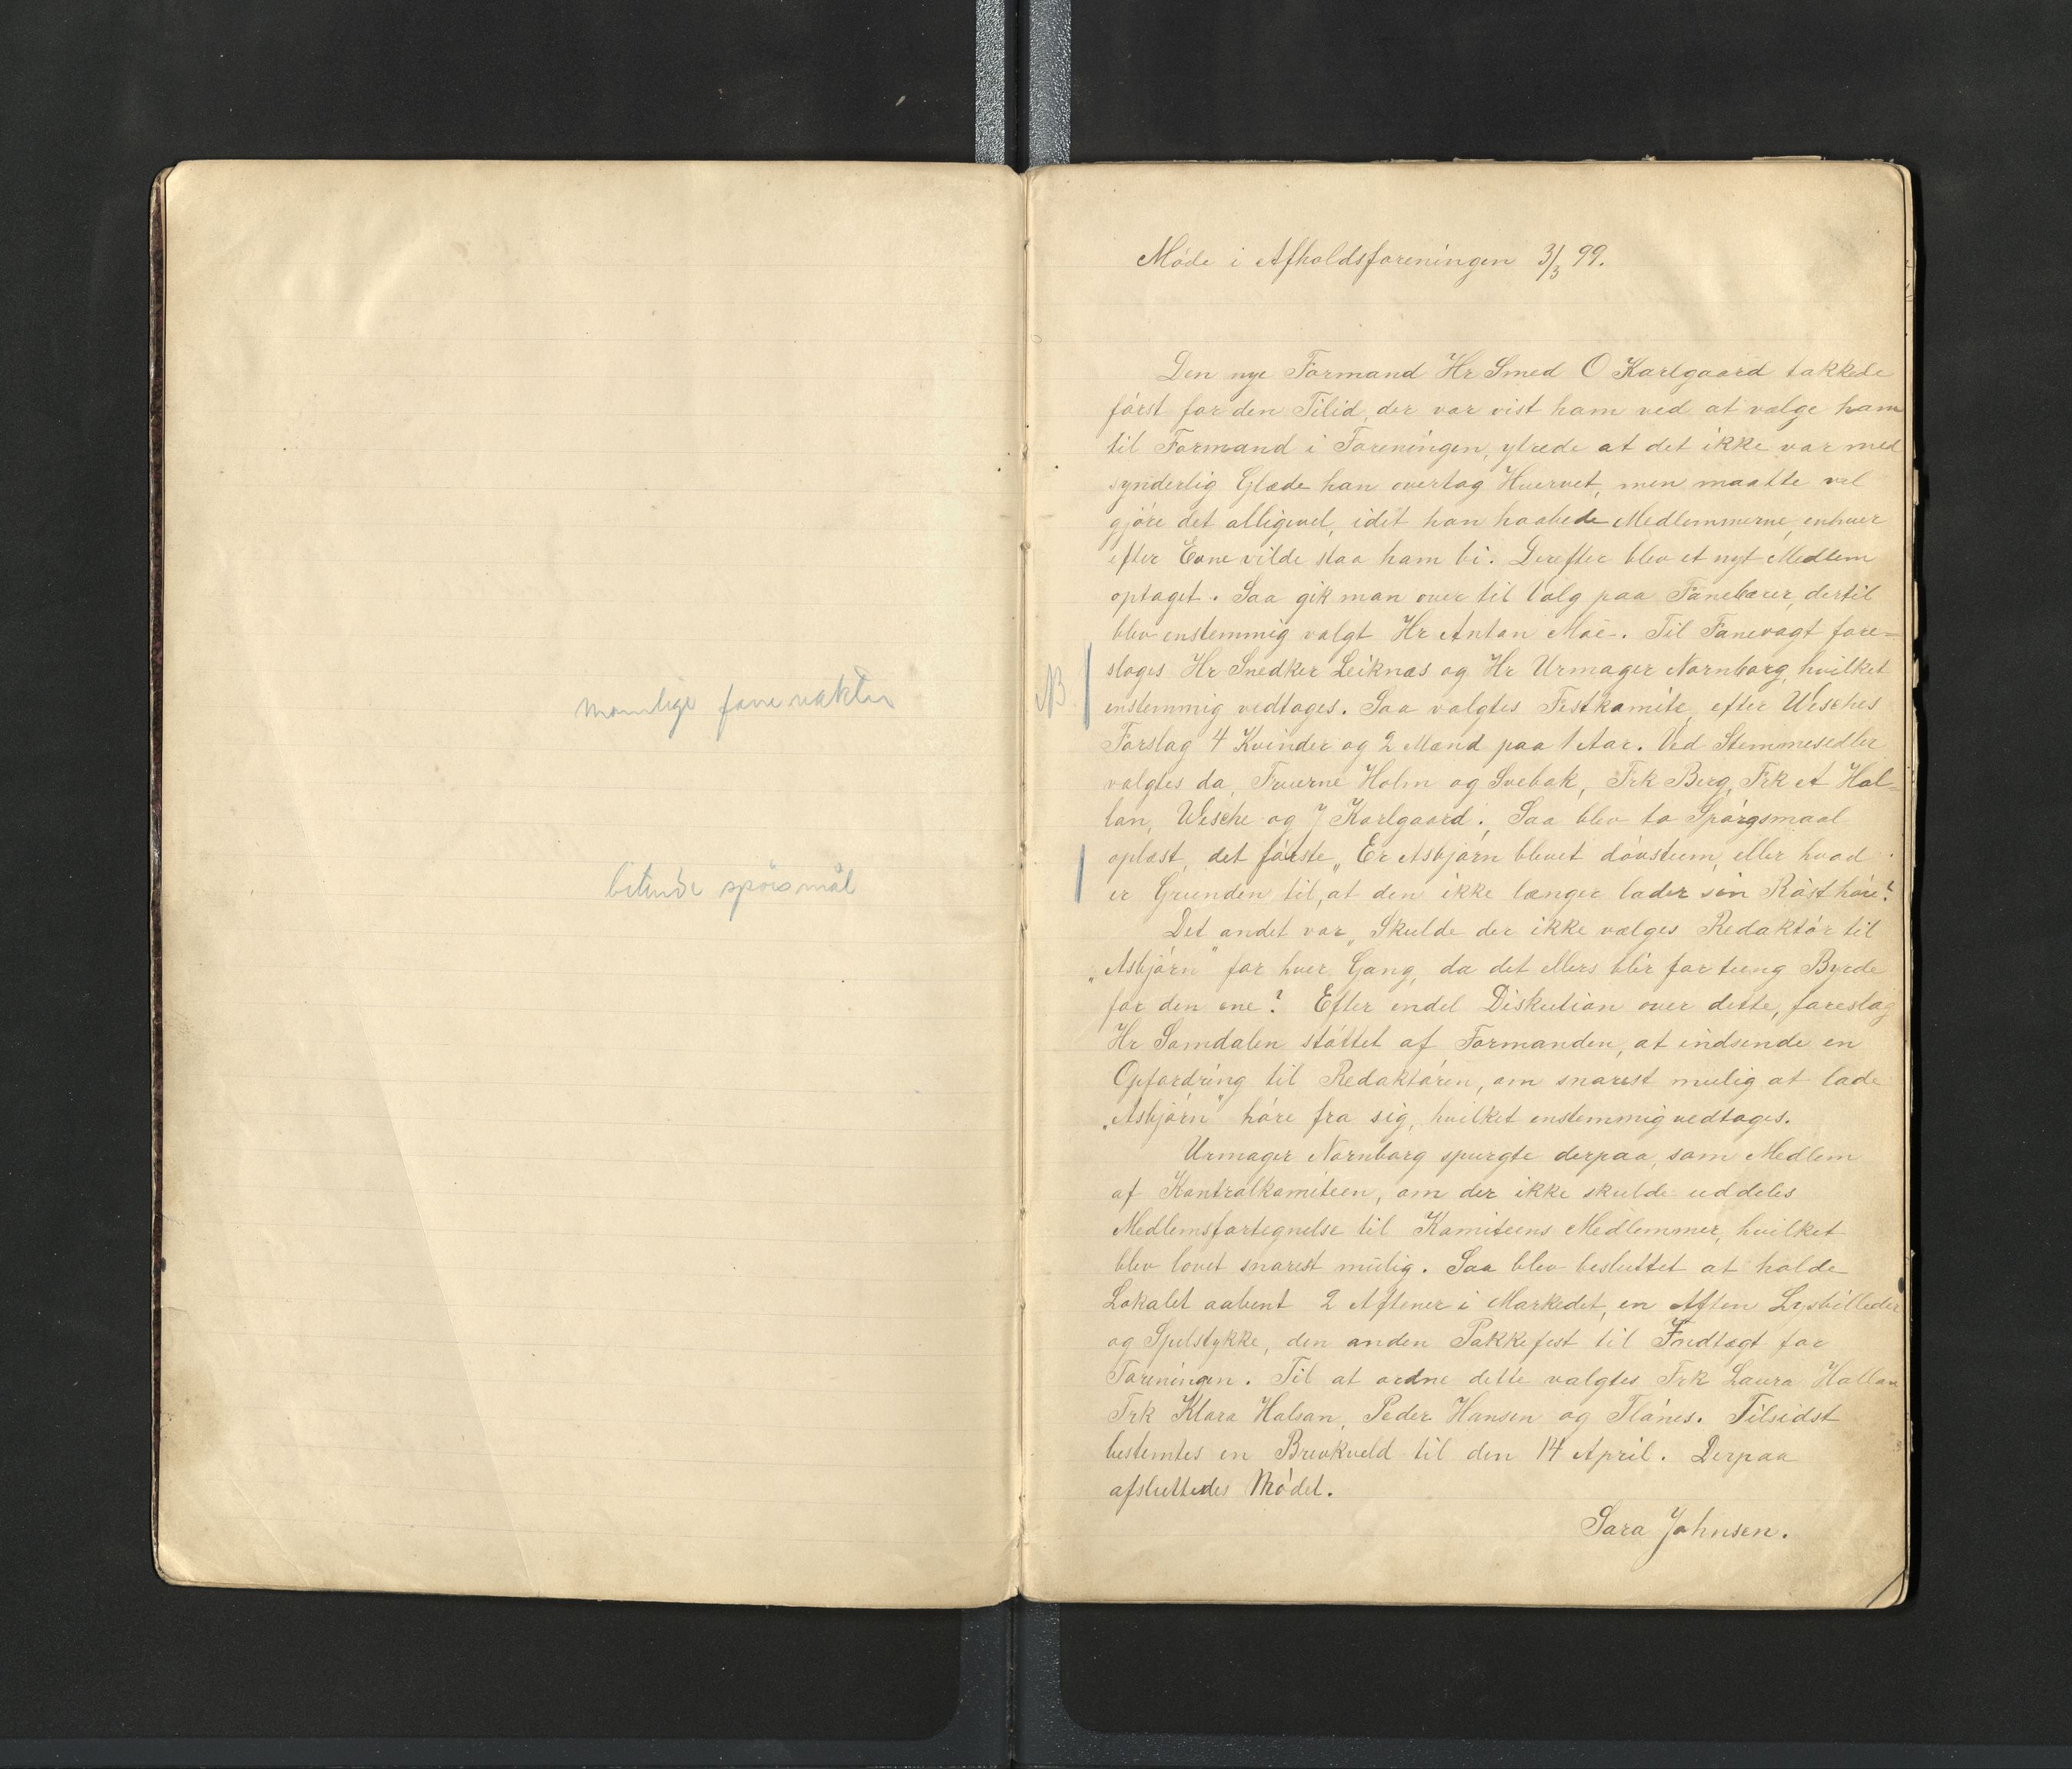 manlige fanevakter
bitende spörsmål
Móde i Afholdsforeningen 3/3 99.
Den nye Formand Hr Smed O Karlgaard takkede
fórst for den Tilid, der var vist ham ved at vælge ham
til Formand i Foreningen, ytrede at det ikke var med
synderlig Glæde han overtog Hvervet, men maatte vel
gjóre det alligevel, idet han haabede Medlemmerne, enhver
efter Evne vilde staa ham bi. Derefter blev et nyt Medlem
optaget. Saa gik man over til Valg paa Fanebærer, dertil
blev enstemmig valgt Hr Anton Moe. Til Fanevagt fore=
NB
sloges Hr Snedker Leiknæs og Hr Urmager Nornborg, hvilket
enstemmig vedtoges. Saa valgtes Festkomite, efter Wesches
Forslag 4 Kvinder og 2 Mænd paa 1 Aar. Ved Stemmesedler
valgtes da, Fruerne Holm og Svebak, Frk Berg, Frk A Hal=
lan, Wesche og J Karlgaard. Saa blev to Spórgsmaal
oplæst, det fórste „Er Asbjórn blevet dóvstum, eller hvad
er Grunden til, at den ikke længer lader sin Róst hóre?
Det andet var „Skulde der ikke vælges Redaktór til
„Asbjórn" for hver Gang, da det ellers blir for tung Byrde
for den ene? Efter endel Diskution over dette, foreslog
Hr Somdalen stóttet af Formanden, at indsende en
Opfordring til Redaktóren, om snarest mulig at lade
„Asbjórn" hóre fra sig, hvilket enstemmig vedtoges.
Urmager Nornborg spurgte derpaa, som Medlem
af Kontrolkomiteen, om der ikke skulde uddeles
Medlemsfortegnelse til Komiteens Medlemmer, hvilket
blev lovet snarest mulig. Saa blev besluttet at holde
Lokalet aabent 2 Aftener i Markedet, en Aften Lysbilleder
og Spelstykke, den anden Pakkefest til Indtægt for
Foreningen. Til at ordne dette valgtes Frk Laura Hallan
Frk Klara Halsan, Peder Hansen og Flónes. Tilsidst
bestemtes en Brevkveld til den 14 April. Derpaa
afsluttedes Módet.
Sara Johnsen.